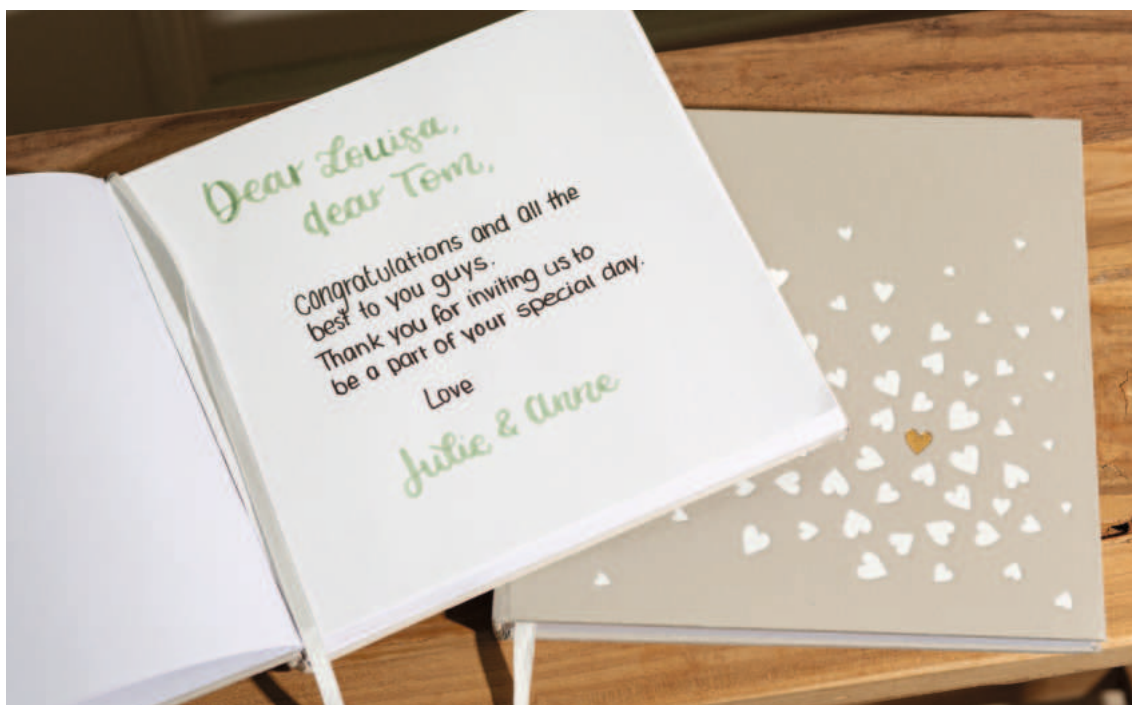 Dear Louisa,
dear Tom,
Congratulations and all the
best to you guys.
Thank you for inviting us to
be a part of your special day.
Love
Julie & Anne